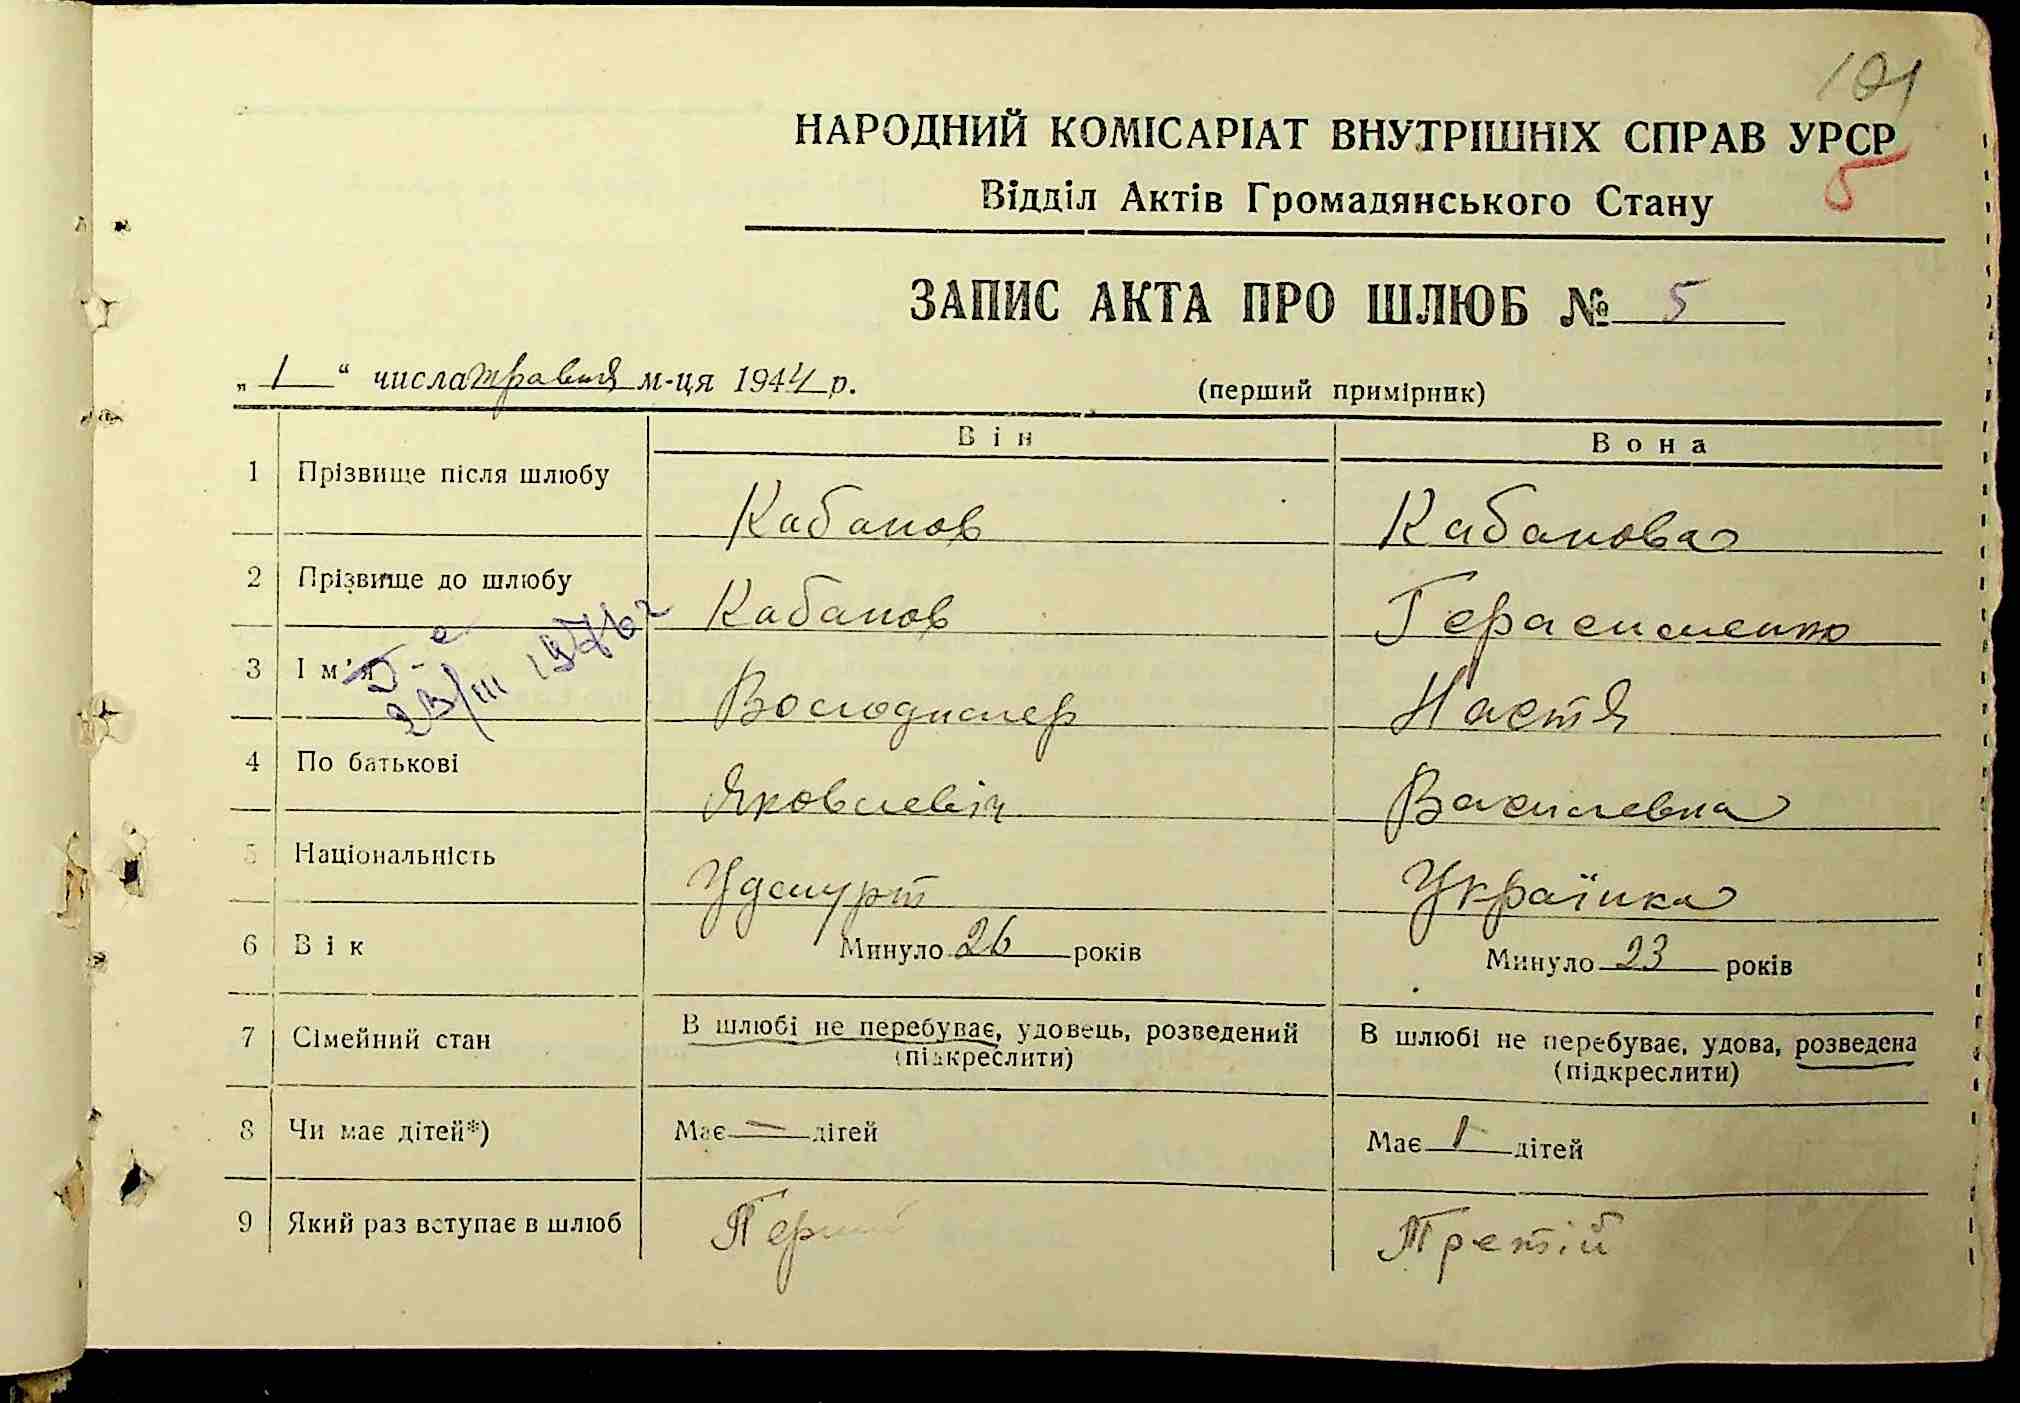 101
НАРОДНИЙ КОМІСАРІАТ ВНУТРІШНІХ СПРАВ УРСР
5
Відділ Актів Громадянського Стану
ЗАПИС АКТА ПРО ШЛЮБ № 5
„ 1 “ числа травня м-ця 1944 р.
(перший примірник)
Він Вона
1 Прізвище після шлюбу Кабанов Кабанова
2 Прізвище до шлюбу Кабанов Герасименко
3 Ім'я Володимер Настя
23/III 1976 г
4 По батькові Яковлевіч Василевна
5 Національність Удмурт Українка
6 Вік Минуло 26 років Минуло 23 років
7 Сімейний стан В шлюбі не перебуває, удовець, розведений В шлюбі не перебуває, удова, розведена
(підкреслити) (підкреслити)
8 Чи має дітей*) Має — дітей Має 1 дітей
9 Який раз вступає в шлюб Третій